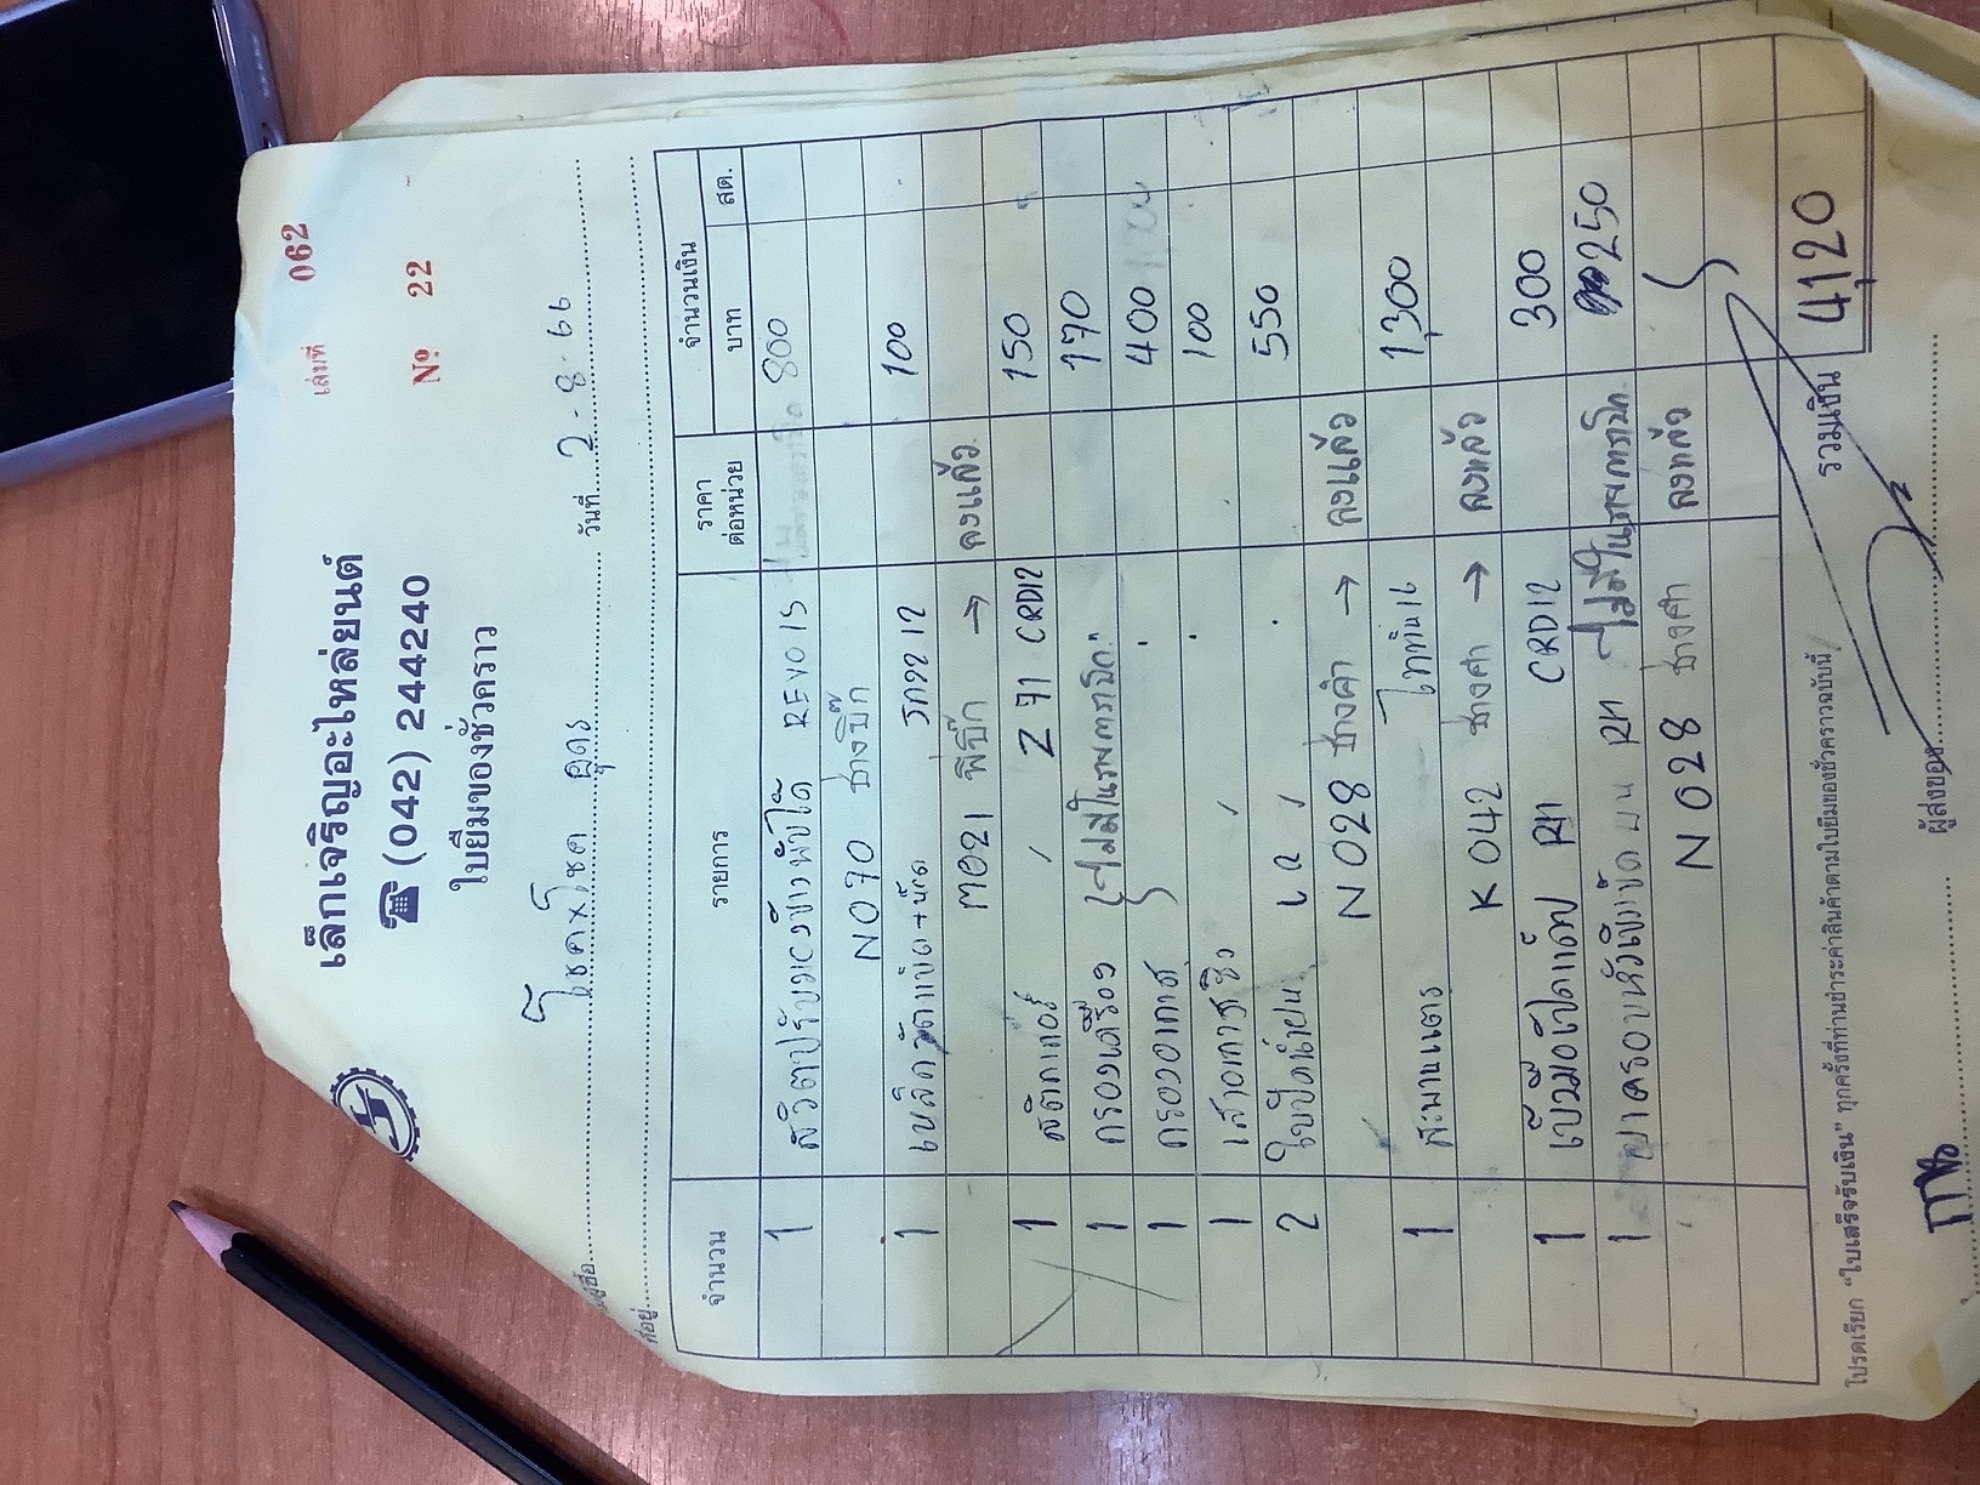 เล่มที่ 062
เล็กเจริญอะไหล่ยนต์
☎ (042) 244240
Nº 22
ใบยืมของชั่วคราว
โชค x โชค อุดร วันที่ 2-8-66
ที่อยู่
จำนวน รายการ ราคาต่อหน่วย จำนวนเงิน
บาท สต.
1 REVO 15 800
NO70 ช่างบิ๊ก
1 เหล็ก + น๊อต 100
M021 พี่บิ๊ก → ลงแล้ว
1 สติกเกอร์ Z71 CRD12 150
1 กรองเครื่อง 170
1 กรองอากาศ 400
1 100
2 ใบปัดน้ำฝน 550
N028 ช่างคำ → ลงแล้ว
1 สะพานแตร ไททัน 16 1,300
K042 ช่างคำ → ลงแล้ว
1 เบ้ามือเปิดแค๊ป RH CRD12 300
1 RH ไม่มีในรายการบิล 250
N028 ช่างคำ ลงแล้ว
รวมเงิน 4,120
โปรดเรียก "ใบเสร็จรับเงิน" ทุกครั้งที่ท่านชำระค่าสินค้าตามใบยืมของชั่วคราวฉบับนี้
ผู้ส่งของ